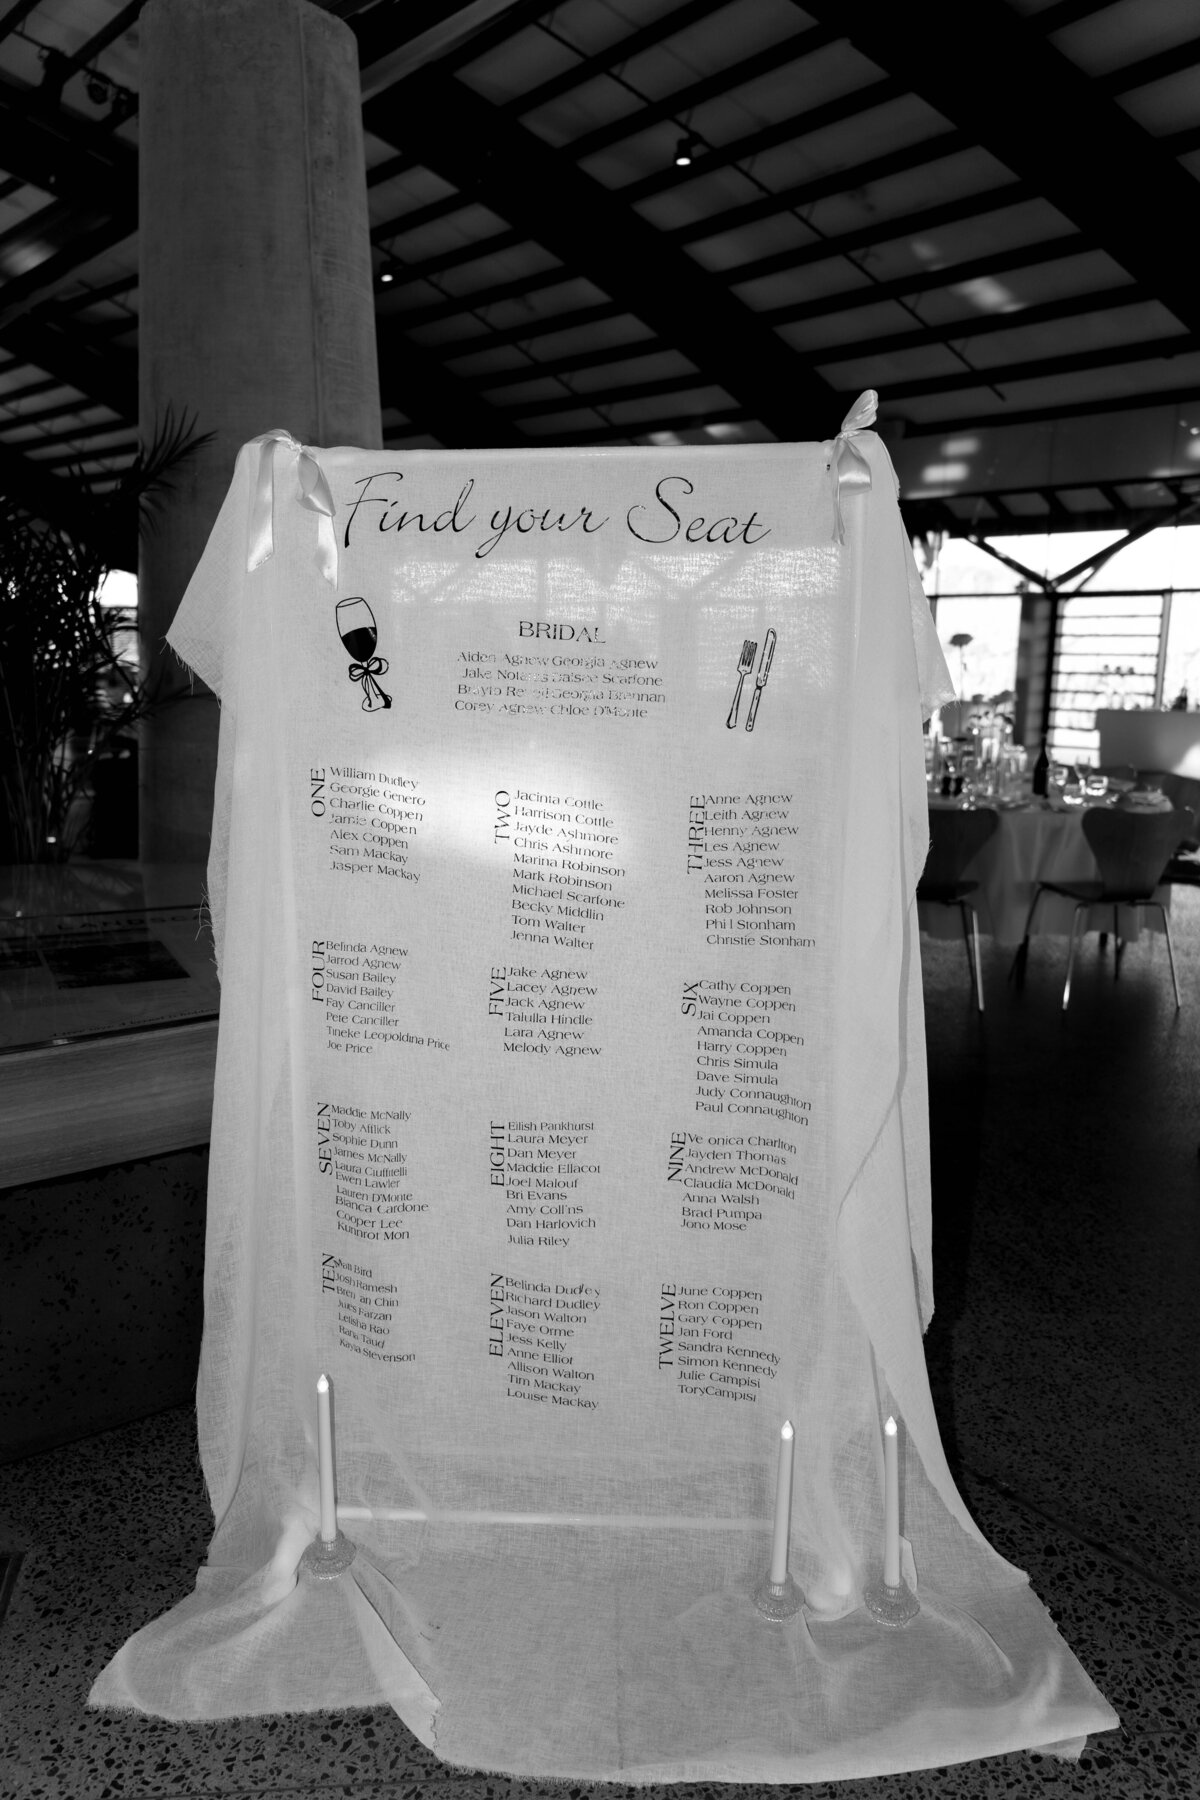 Find your Seat
BRIDAL
Aiden Agnew Georgia Agnew
Jake Scarfone
Georgia Brennan
Corey Agnew Chloe D'Monte
ONE
William Dudley
Georgie Genero
Charlie Coppen
Jamie Coppen
Alex Coppen
Sam Mackay
Jasper Mackay
TWO
Jacinta Cottle
Harrison Cottle
Jayde Ashmore
Chris Ashmore
Marina Robinson
Mark Robinson
Michael Scarfone
Becky Middlin
Tom Walter
Jenna Walter
THREE
Anne Agnew
Leith Agnew
Henny Agnew
Les Agnew
Jess Agnew
Aaron Agnew
Melissa Foster
Rob Johnson
Phi l Stonham
Christie Stonham
FOUR
Belinda Agnew
Jarrod Agnew
Susan Bailey
David Bailey
Fay Canciller
Pete Canciller
Tineke Leopoldina Price
Joe Price
FIVE
Jake Agnew
Lacey Agnew
Jack Agnew
Talulla Hindle
Lara Agnew
Melody Agnew
SIX
Cathy Coppen
Wayne Coppen
Jai Coppen
Amanda Coppen
Harry Coppen
Chris Simula
Dave Simula
Judy Connaughton
Paul Connaughton
SEVEN
Maddie McNally
Toby Afflick
Sophie Dunn
James McNally
Laura Ciuffitelli
Ewen Lawler
Lauren D'Monte
Bianca Cardone
Cooper Lee
Kunnrot Mon
EIGHT
Eilish Pankhurst
Laura Meyer
Dan Meyer
Maddie Ellacot
Joel Malouf
Bri Evans
Amy Coll ns
Dan Harlovich
Julia Riley
NINE
Ve onica Charlton
Jayden Thomas
Andrew McDonald
Claudia McDonald
Anna Walsh
Brad Pumpa
Jono Mose
TEN
Bird
Josh Ramesh
Bren an Chin
Jules Farzan
Letisha Rao
Rana Taud
Kayla Stevenson
ELEVEN
Belinda Dudley
Richard Dudley
Jason Walton
Faye Orme
Jess Kelly
Anne Elliot
Allison Walton
Tim Mackay
Louise Mackay
TWELVE
June Coppen
Ron Coppen
Gary Coppen
Jan Ford
Sandra Kennedy
Simon Kennedy
Julie Campisi
ToryCampisi